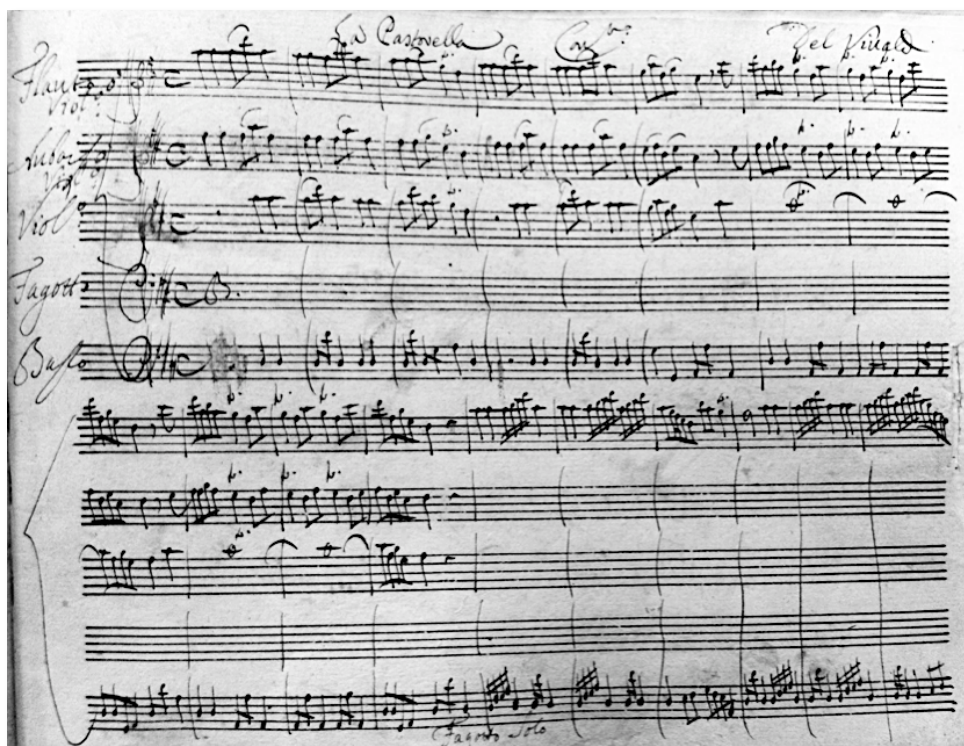 La Pastorella Con.to Del Vivald
Flauto ò
Viol:o
Hubois ò
Viol:o
Viol:o
Fagotto
Basso
Fagotto Solo